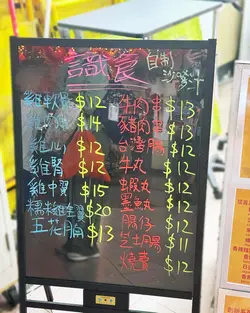 自制
沙嗲汁
雞軟骨 $12
$14
雞心 $12
雞腎 $12
雞中翼 $15
糯米雞全翼 $20
五花腩 $13
牛肉串 $13
豬肉串 $13
台灣腸 $12
牛丸 $12
蝦丸 $12
墨魚丸 $12
腸仔 $12
芝士腸 $11
燒賣 $12